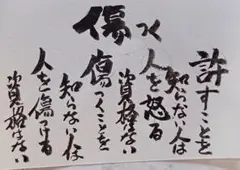 傷つく
許すことを
知らない人は
人を怒る
資格はない
傷つくことを
知らない人は
人を傷つける
資格はない